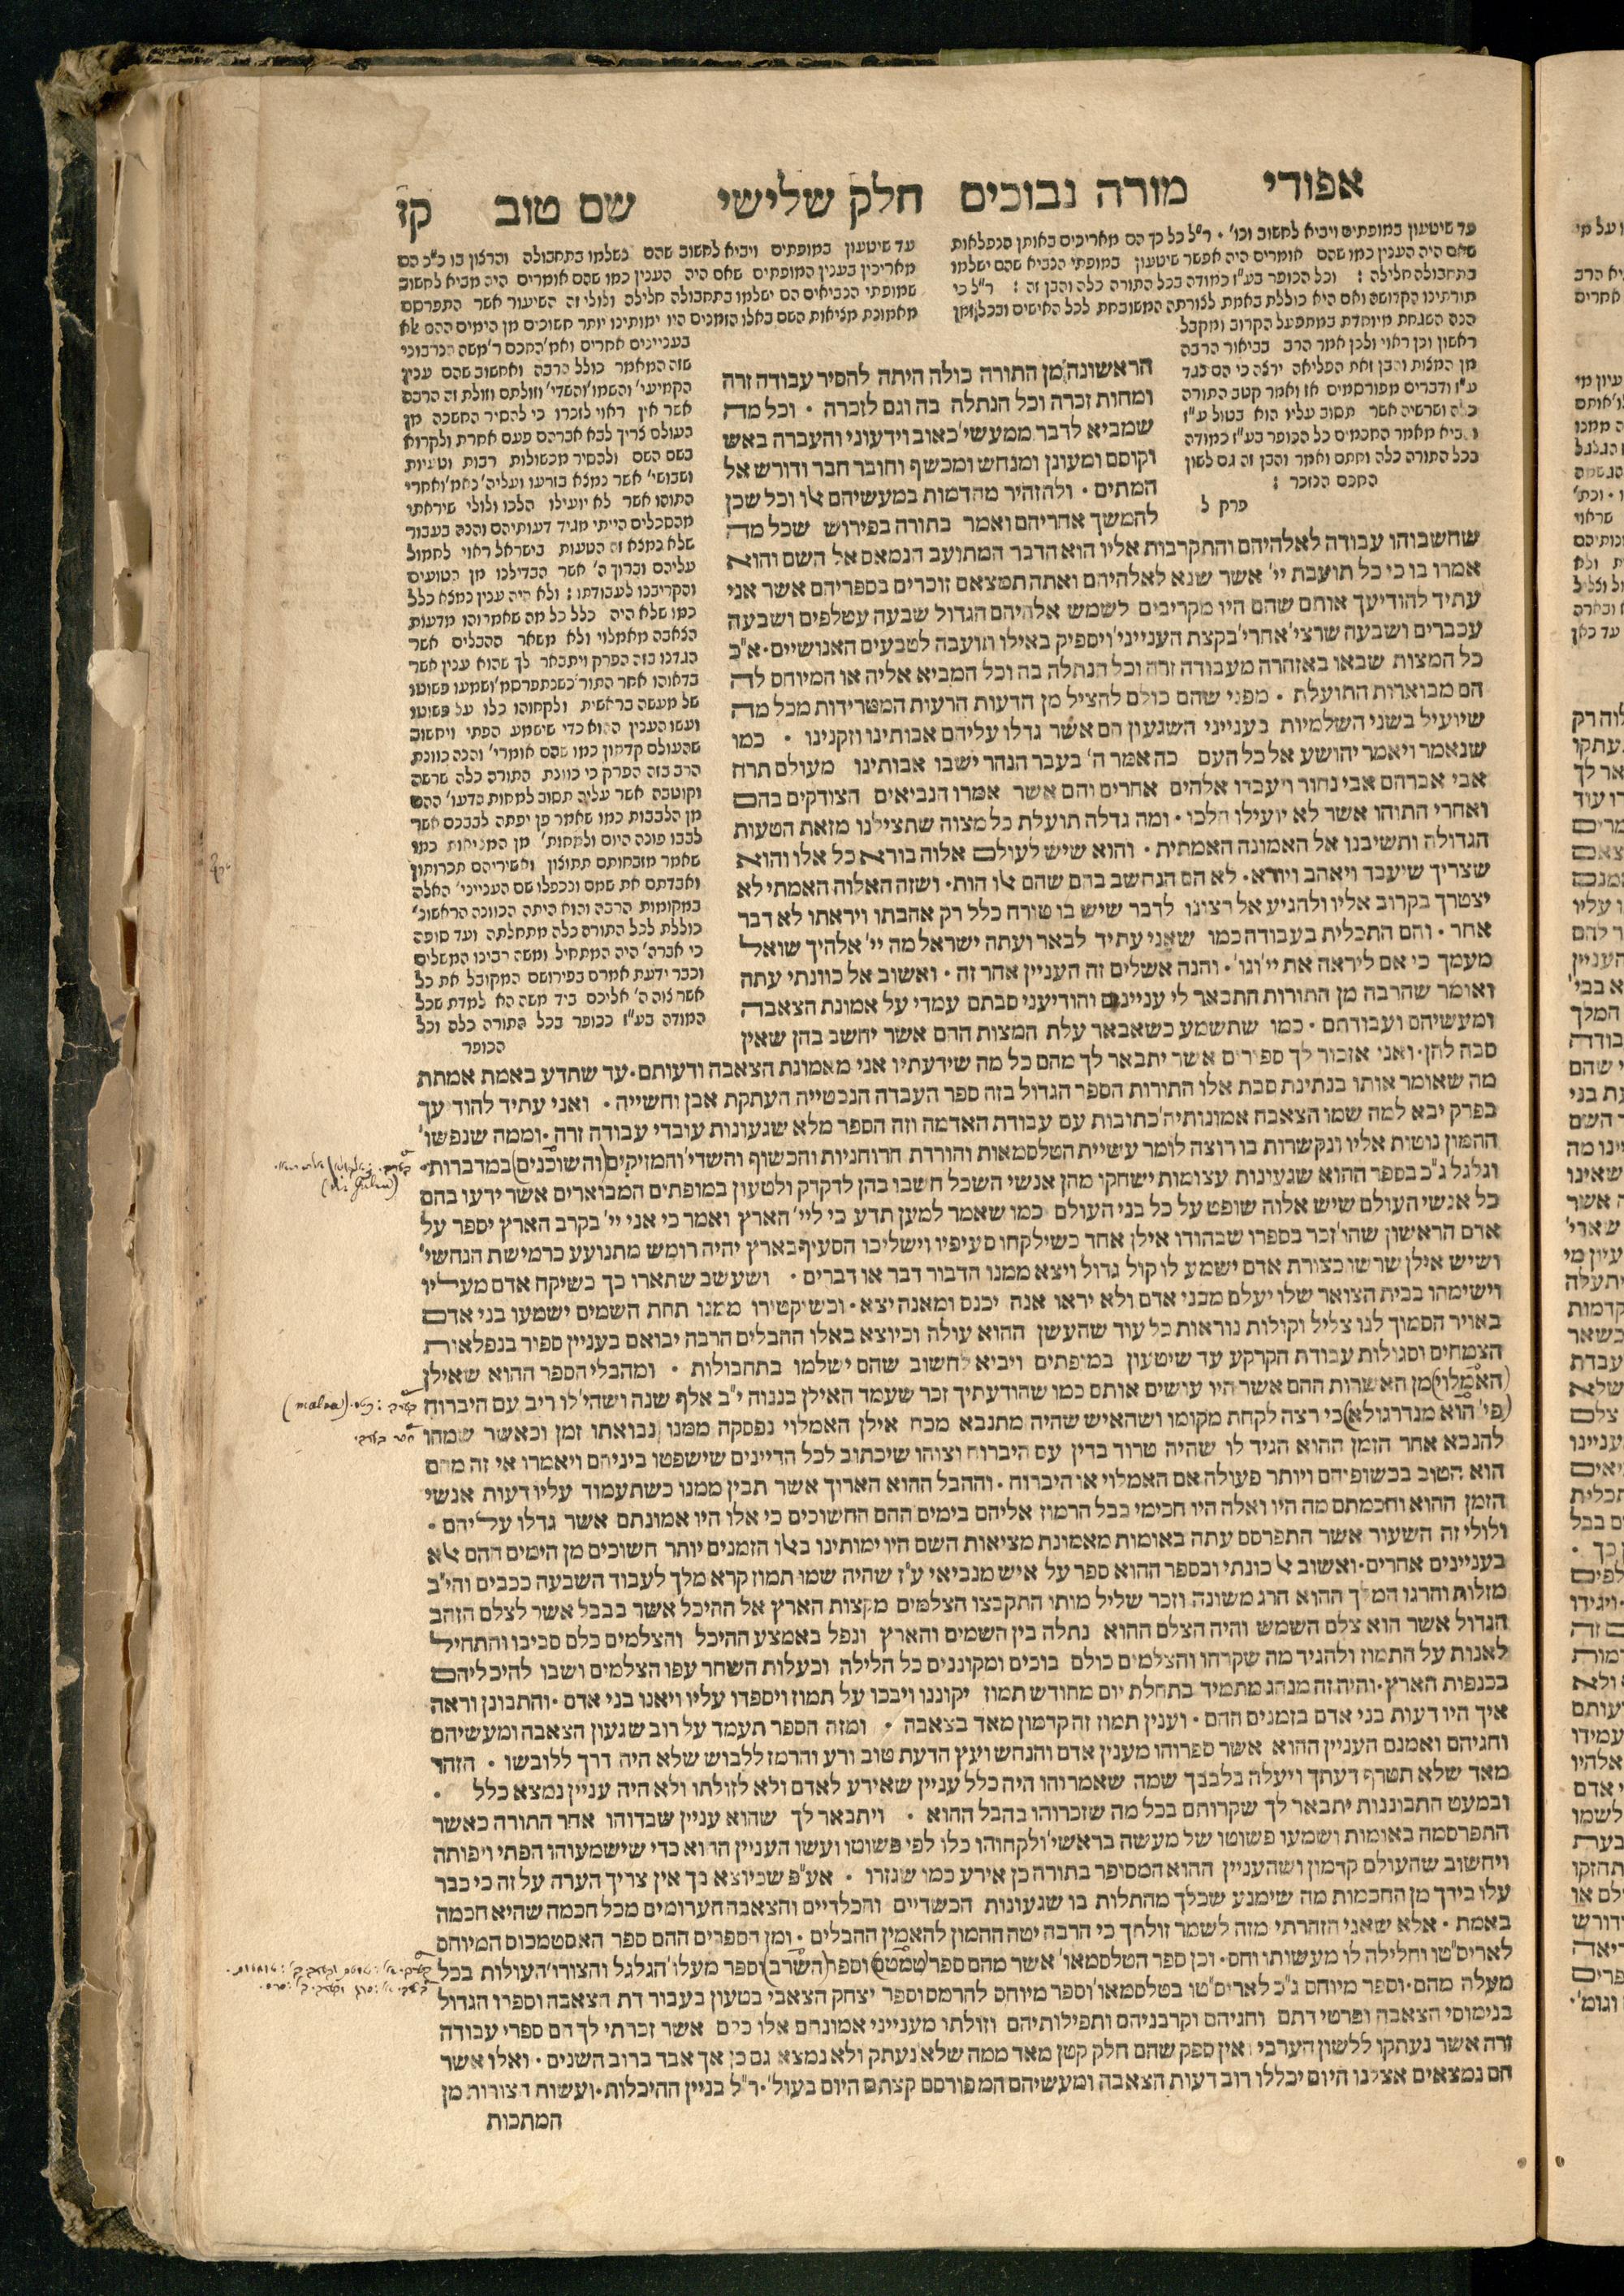 אפודי
מורה נבוכים
חלק שלישי
שם טוב
קז
עד שיטעון במופתים ויביא לחשוב וכו' · ר"ל כל כך הם מאריכים באותן הנפלאות
שאם היה הענין כמו שהם אומרים היה אפשר שיטעון במופתי הנביא שהם ישלמו
בתחבולה חלילה : וכל הכופר בע"ז כמודה בכל התורה כלה והבן זה : ר"ל כי
תורתינו הקדושה ואם היא כוללת באמת לצורתה המשובחת לכל האישים ובכל זמן
הנה השגחת מיוחדת במתפעל הקרוב ומקבל
ראשון וכן ראוי ולכן אמר הרב בביאור הרבה
מן המצות והבן זאת הפליאה ירצה כי הם כנגד
ע"ז ודברים מפורסמים אז ואמר קטב התורה
כלה ושרשיה אשר תסוב עליו הוא בטול ע"ז
והביא מאמר החכמים כל הכופר בע"ז כמודה
בכל התורה כלה וחתם ואמר והבן זה גם לשון
החכם הנזכר :
פרק ל
עד שיטעון במופתים ויביא לחשוב שהם נשלמו בתחבולה והרצון בו כ"כ הם
מאריכין בענין המופתים שאם היה הענין כמו שהם אומרים היה מביא לחשוב
שמופתי הנביאים הם ישלמו בתחבולה חלילה ולולי זה השיעור אשר התפרסם
מאמונת מציאות השם באלו הזמנים היו ימותינו יותר חשוכים מן הימים ההם לא
בעניינים אחרים ואמ' החכם ר' משה הנרבוני
שזה המאמר כולל הרבה ואחשוב שהם ענין
הקמיעי' והשמו' והשדי' וזולתם וזולת זה הרבה
אשר אין ראוי לזכרו כי להסיר החשכה מן
בעולם צריך לבא אברהם פעם אחרת ולקרוא
בשם השם ולהסיר מכשולות רבות וטעיות
ושבושי' אשר נמצא בזרעו ועליה' נאמ' ואחרי
התוהו אשר לא יועילו הלכו ולולי שיראתי
מהסכלים הייתי מגיד דעותיהם והנה בעבור
שלא נמצא זה הטעות בישראל ראוי לחמול
עליהם וברוך ה' אשר הבדילנו מן הטועים
והקריבנו לעבודתו : ולא היה ענין נמצא כלל
כמו שלא היה כלל כל מה שאמרוהו מדעות
הצאבה מאמלוי ולא משאר ההבלים אשר
הגדנו בזה הפרק ויתבאר לך שהוא ענין אשר
בדאוהו אחר התור' כשנתפרסמ' ושמעו פשוטו
של מעשה בראשית ולקחוהו כלו על פשוטו
ועשו הענין ההוא כדי שישמע הפתי ויחשוב
שהעולם קדמון כמו שהם אומרי' והנה כוונת
הרב בזה הפרק כי כוונת התורה כלה שרשה
וקוטבה אשר עליה תסוב למחות הדעו' ההם
מן הלבבות כמו שאמר פן יפתה לבבכם אשר
לבבו פונה היום ולמחות' מן המציאות כמו
שאמר מזבחותם תתוצון ואשיריהם תכרותון
ואבדתם את שמם ונכפלו שם הענייני' האלה
במקומות הרבה והוא היתה הכוונה הראשונ'
כוללת לכל התורה כלה מתחלתה ועד סופה
כי אברה' היה המתחיל ומשה רבינו המשלים
וכבר ידעת אמרם בפירושם המקובל את כל
אשר צוה ה' אליכם ביד משה הא למדת שכל
המודה בע"ז ככופר בכל התורה כלה וכל
הכופר
הראשונה מן התורה כולה היתה להסיר עבודה זרה
ומחות זכרה וכל הנתלה בה וגם לזכרה · וכל מה
שמביא לדבר ממעשי' כאוב וידעוני והעברה באש
וקוסם ומעונן ומנחש ומכשף וחובר חבר ודורש אל
המתים · ולהזהיר מהדמות במעשיהם אלו וכל שכן
להמשך אחריהם ואמר בתורה בפירוש שכל מה
שחשבוהו עבודה לאלהיהם והתקרבות אליו הוא הדבר המתועב הנמאס אל השם והוא
אמרו בו כי כל תועבת יי' אשר שנא לאלהיהם ואתה תמצאם זוכרים בספריהם אשר אני
עתיד להודיעך אותם שהם היו מקריבים לשמש אלהיהם הגדול שבעה עטלפים ושבעה
עכברים ושבעה שרצי' אחרי' בקצת הענייני' ויספיק באילו תועבה לטבעים האנושיים · א"כ
כל המצות שבאו באזהרה מעבודה זרה וכל הנתלה בה וכל המביא אליה או המיוחס לה
הם מבוארות התועלת · מפני שהם כולם להציל מן הדעות הרעות המטרידות מכל מה
שיועיל בשני השלמיות בענייני השגעון הם אשר גדלו עליהם אבותינו וזקנינו · כמו
שנאמר ויאמר יהושע אל כל העם כה אמר ה' בעבר הנהר ישבו אבותינו מעולם תרח
אבי אברהם אבי נחור ויעבדו אלהים אחרים והם אשר אמרו הנביאים הצודקים בהם
ואחרי התוהו אשר לא יועילו הלכו · ומה גדלה תועלת כל מצוה שתצילנו מזאת הטעות
הגדולה ותשיבנו אל האמונה האמתית · והוא שיש לעולם אלוה בורא כל אלו והוא
שצריך שיעבד ויאהב ויורא · לא הם הנחשב בהם שהם אלו הות · ושזה האלוה האמתי לא
יצטרך בקרוב אליו ולהגיע אל רצונו לדבר שיש בו טורח כלל רק אהבתו ויראתו לא דבר
אחר · והם התכלית בעבודה כמו שאני עתיד לבאר ועתה ישראל מה יי' אלהיך שואל
מעמך כי אם ליראה את יי' וגו' · והנה אשלים זה העניין אחר זה · ואשוב אל כוונתי עתה
ואומר שהרבה מן התורות התבאר לי עניינם והודיעני סבתם עמדי על אמונת הצאבה
ומעשיהם ועבודתם · כמו שתשמע כשאבאר עלת המצות ההם אשר יחשב בהן שאין
סבה להן · ואני אזכור לך ספרים אשר יתבאר לך מהם כל מה שידעתיו אני מאמונת הצאבה ודעותם · עד שתדע באמת אמתת
מה שאומר אותו בנתינת סבת אלו התורות הספר הגדול בזה ספר העבדה הנבטייה העתקת אבן וחשייה · ואני עתיד להודיעך
בפרק יבא למה שמו הצאבה אמונותיה' כתובות עם עבודת האדמה וזה הספר מלא שגעונות עובדי עבודה זרה · וממה שנפשו'
ההמון נוטות אליו ונקשרות בו רוצה לומר עשיית הטלסמאות והורדת הרוחניות והכשוף והשדי' והמזיקים (והשוכנים) במדברות ·
וגלגל ג"כ בספר ההוא שגעיונות עצומות ישחקו מהן אנשי השכל חשבו בהן לדקדק ולטעון במופתים המבוארים אשר ידעו בהם
כל אנשי העולם שיש אלוה שופט על כל בני העולם כמו שאמר למען תדע כי ליי' הארץ ואמר כי אני יי' בקרב הארץ יספר על
אדם הראשון שהו' זכר בספרו שבהודו אילן אחד כשילקחו סעיפיו וישליכו הסעיף בארץ יהיה רומש מתנועע כרמישת הנחשי'
ושיש אילן שרשו כצורת אדם ישמע לו קול גדול ויצא ממנו הדבור דבר או דברים · ושעשב שתארו כך כשיקח אדם מעליו
וישימהו בבית הצואר שלו יעלם מבני אדם ולא יראו אנה יכנס ומאנה יצא · וכשיקטירו ממנו תחת השמים ישמעו בני אדם
באויר הסמוך לנו צליל וקולות נוראות כל עוד שהעשן ההוא עולה וכיוצא באלו ההבלים הרבה יבואם בעניין ספור בנפלאות
הצמחים וסגולות עבודת הקרקע עד שיטעון במופתים ויביא לחשוב שהם ישלמו בתחבולות · ומהבלי הספר ההוא שאילן
(האמלוי) מן האשרות ההם אשר היו עושים אותם כמו שהודעתיך זכר שעמד האילן בננוה י"ב אלף שנה ושהי' לו ריב עם היברוח
(פי' הוא מנדרגולא) כי רצה לקחת מקומו ושהאיש שהיה מתנבא מכח אילן האמלוי נפסקה ממנו נבואתו זמן וכאשר שמהו
להנבא אחר הזמן ההוא הגיד לו שהיה טרוד בדין עם היברוח וצוהו שיכתוב לכל הדיינים שישפטו ביניהם ויאמרו אי זה מהם
הוא הטוב בכשופיהם ויותר פעולה אם האמלוי או היברוח · וההבל ההוא הארוך אשר תבין ממנו כשתעמוד עליו דעות אנשי
הזמן ההוא וחכמתם מה היו ואלה היו חכימי בבל הרמוז אליהם בימים ההם החשוכים כי אלו היו אמונתם אשר גדלו עליהם ·
ולולי זה השעור אשר התפרסם עתה באומות מאמונת מציאות השם היו ימותינו באלו הזמנים יותר חשוכים מן הימים ההם אלא
בעניינים אחרים · ואשוב אל כונתי ובספר ההוא ספר על איש מנביאי ע"ז שהיה שמו תמוז קרא מלך לעבוד השבעה ככבים והי"ב
מזלות והרגו המלך ההוא הרג משונה וזכר שליל מותו התקבצו הצלמים מקצות הארץ אל ההיכל אשר בבבל אשר לצלם הזהב
הגדול אשר הוא צלם השמש והיה הצלם ההוא נתלה בין השמים והארץ ונפל באמצע ההיכל והצלמים כלם סביבו והתחיל
לאנות על התמוז ולהגיד מה שקרהו והצלמים כולם בוכים ומקוננים כל הלילה ובעלות השחר עפו הצלמים ושבו להיכליהם
בכנפות הארץ · והיה זה מנהג מתמיד בתחלת יום מחודש תמוז יקוננו ויבכו על תמוז ויספדו עליו ויאנו בני אדם · והתבונן וראה
איך היו דעות בני אדם בזמנים ההם · וענין תמוז זה קדמון מאד בצאבה · ומזה הספר תעמד על רוב שגעון הצאבה ומעשיהם
וחגיהם ואמנם העניין ההוא אשר ספרוהו מענין אדם והנחש ועץ הדעת טוב ורע והרמז ללבוש שלא היה דרך ללובשו · הזהר
מאד שלא תטרף דעתך ויעלה בלבבך שמה שאמרוהו היה כלל עניין שאירע לאדם ולא לזולתו ולא היה עניין נמצא כלל ·
ובמעט התבוננות יתבאר לך שקרותם בכל מה שזכרוהו בהבל ההוא · ויתבאר לך שהוא עניין שבדוהו אחר התורה כאשר
התפרסמה באומות ושמעו פשוטו של מעשה בראשי' ולקחוהו כלו לפי פשוטו ועשו העניין ההוא כדי שישמעוהו הפתי ויפותה
ויחשוב שהעולם קדמון ושהעניין ההוא המסופר בתורה כן אירע כמו שגזרו · אע"פ שכיוצא בך אין צריך הערה על זה כי כבר
עלו בידך מן החכמות מה שימנע שכלך מהתלות בו שגעונות הכשדיים והכלדיים והצאבה הערומים מכל חכמה שהיא חכמה
באמת · אלא שאני הזהרתי מזה לשמר זולתך כי הרבה יטה ההמון להאמין ההבלים · ומן הספרים ההם ספר האסטמכוס המיוחס
לאריס"טו וחלילה לו מעשותו וחס · וכן ספר הטלסמאו' אשר מהם ספר (טמטם) וספר (השרב) וספר מעלו' הגלגל והצורו' העולות בכל
מעלה מהם · וספר מיוחס ג"כ לאריס"טו בטלסמאו' וספר מיוחס להרמס וספר יצחק הצאבי בטעון בעבור דת הצאבה וספרו הגדול
בנימוסי הצאבה ופרטי דתם וחגיהם וקרבניהם ותפילותיהם וזולתו מענייני אמונתם אלו כלם אשר זכרתי לך הם ספרי עבודה
זרה אשר נעתקו ללשון הערבי אין ספק שהם חלק קטן מאד ממה שלא נעתק ולא נמצא גם כן אך אבד ברוב השנים · ואלו אשר
הם נמצאים אצלנו היום יכללו רוב דעות הצאבה ומעשיהם המפורסם קצתם היום בעול' · ר"ל בניין ההיכלות · ועשות הצורות מן
המתכות
(malva)